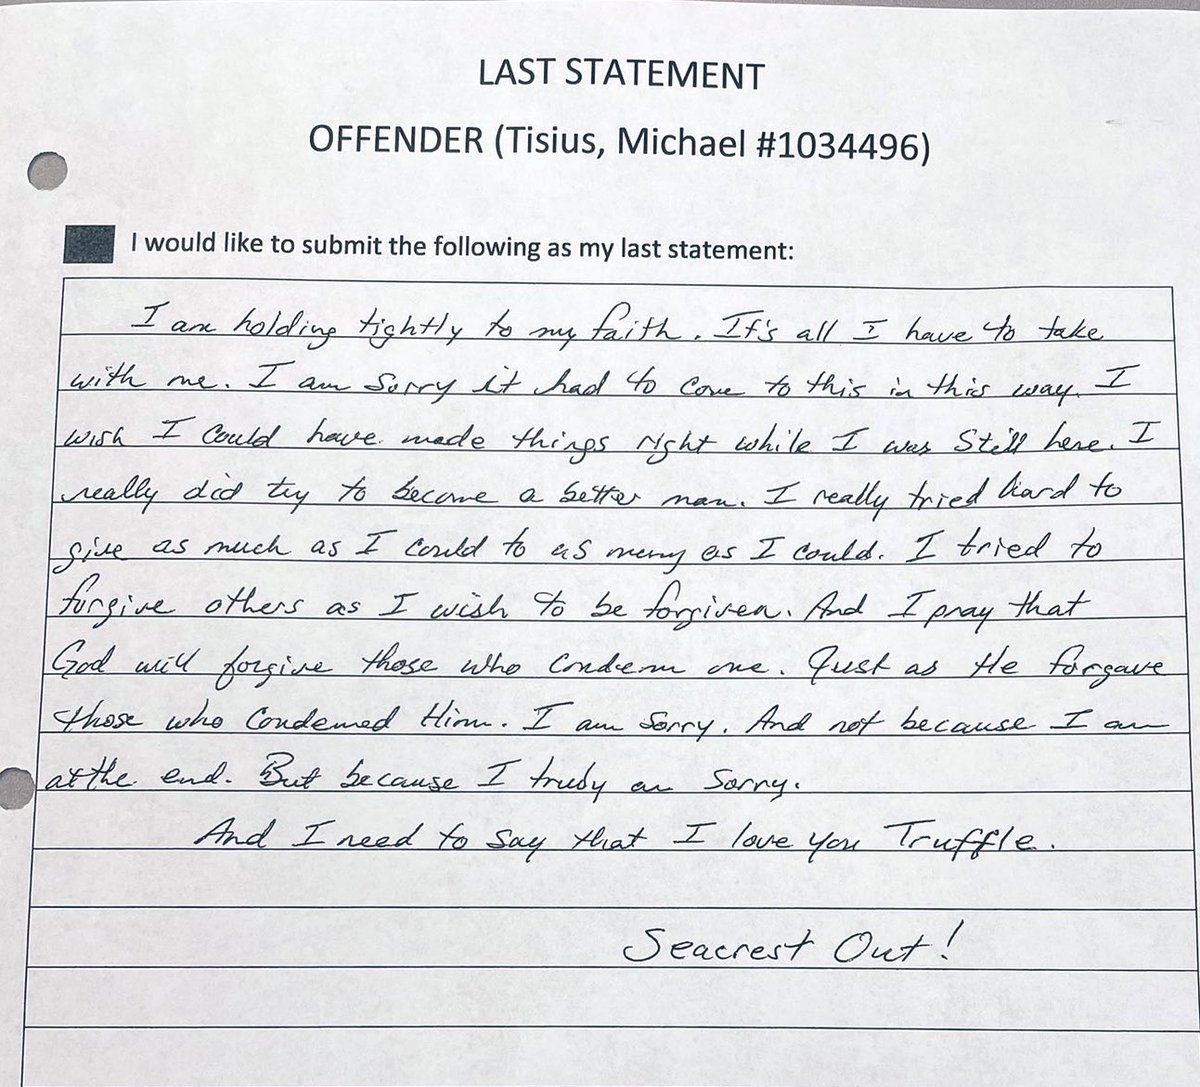 LAST STATEMENT
OFFENDER (Tisius, Michael #1034496)
I would like to submit the following as my last statement:
I am holding tightly to my faith. It's all I have to take
with me. I am sorry it had to come to this in this way. I
wish I could have made things right while I was still here. I
really did try to become a better man. I really tried hard to
give as much as I could to as many as I could. I tried to
forgive others as I wish to be forgiven. And I pray that
God will forgive those who condemn me. Just as He forgave
those who condemed Him. I am sorry. And not because I am
at the end. But because I truly am sorry.
And I need to say that I love you Truffle.
Seacrest Out!